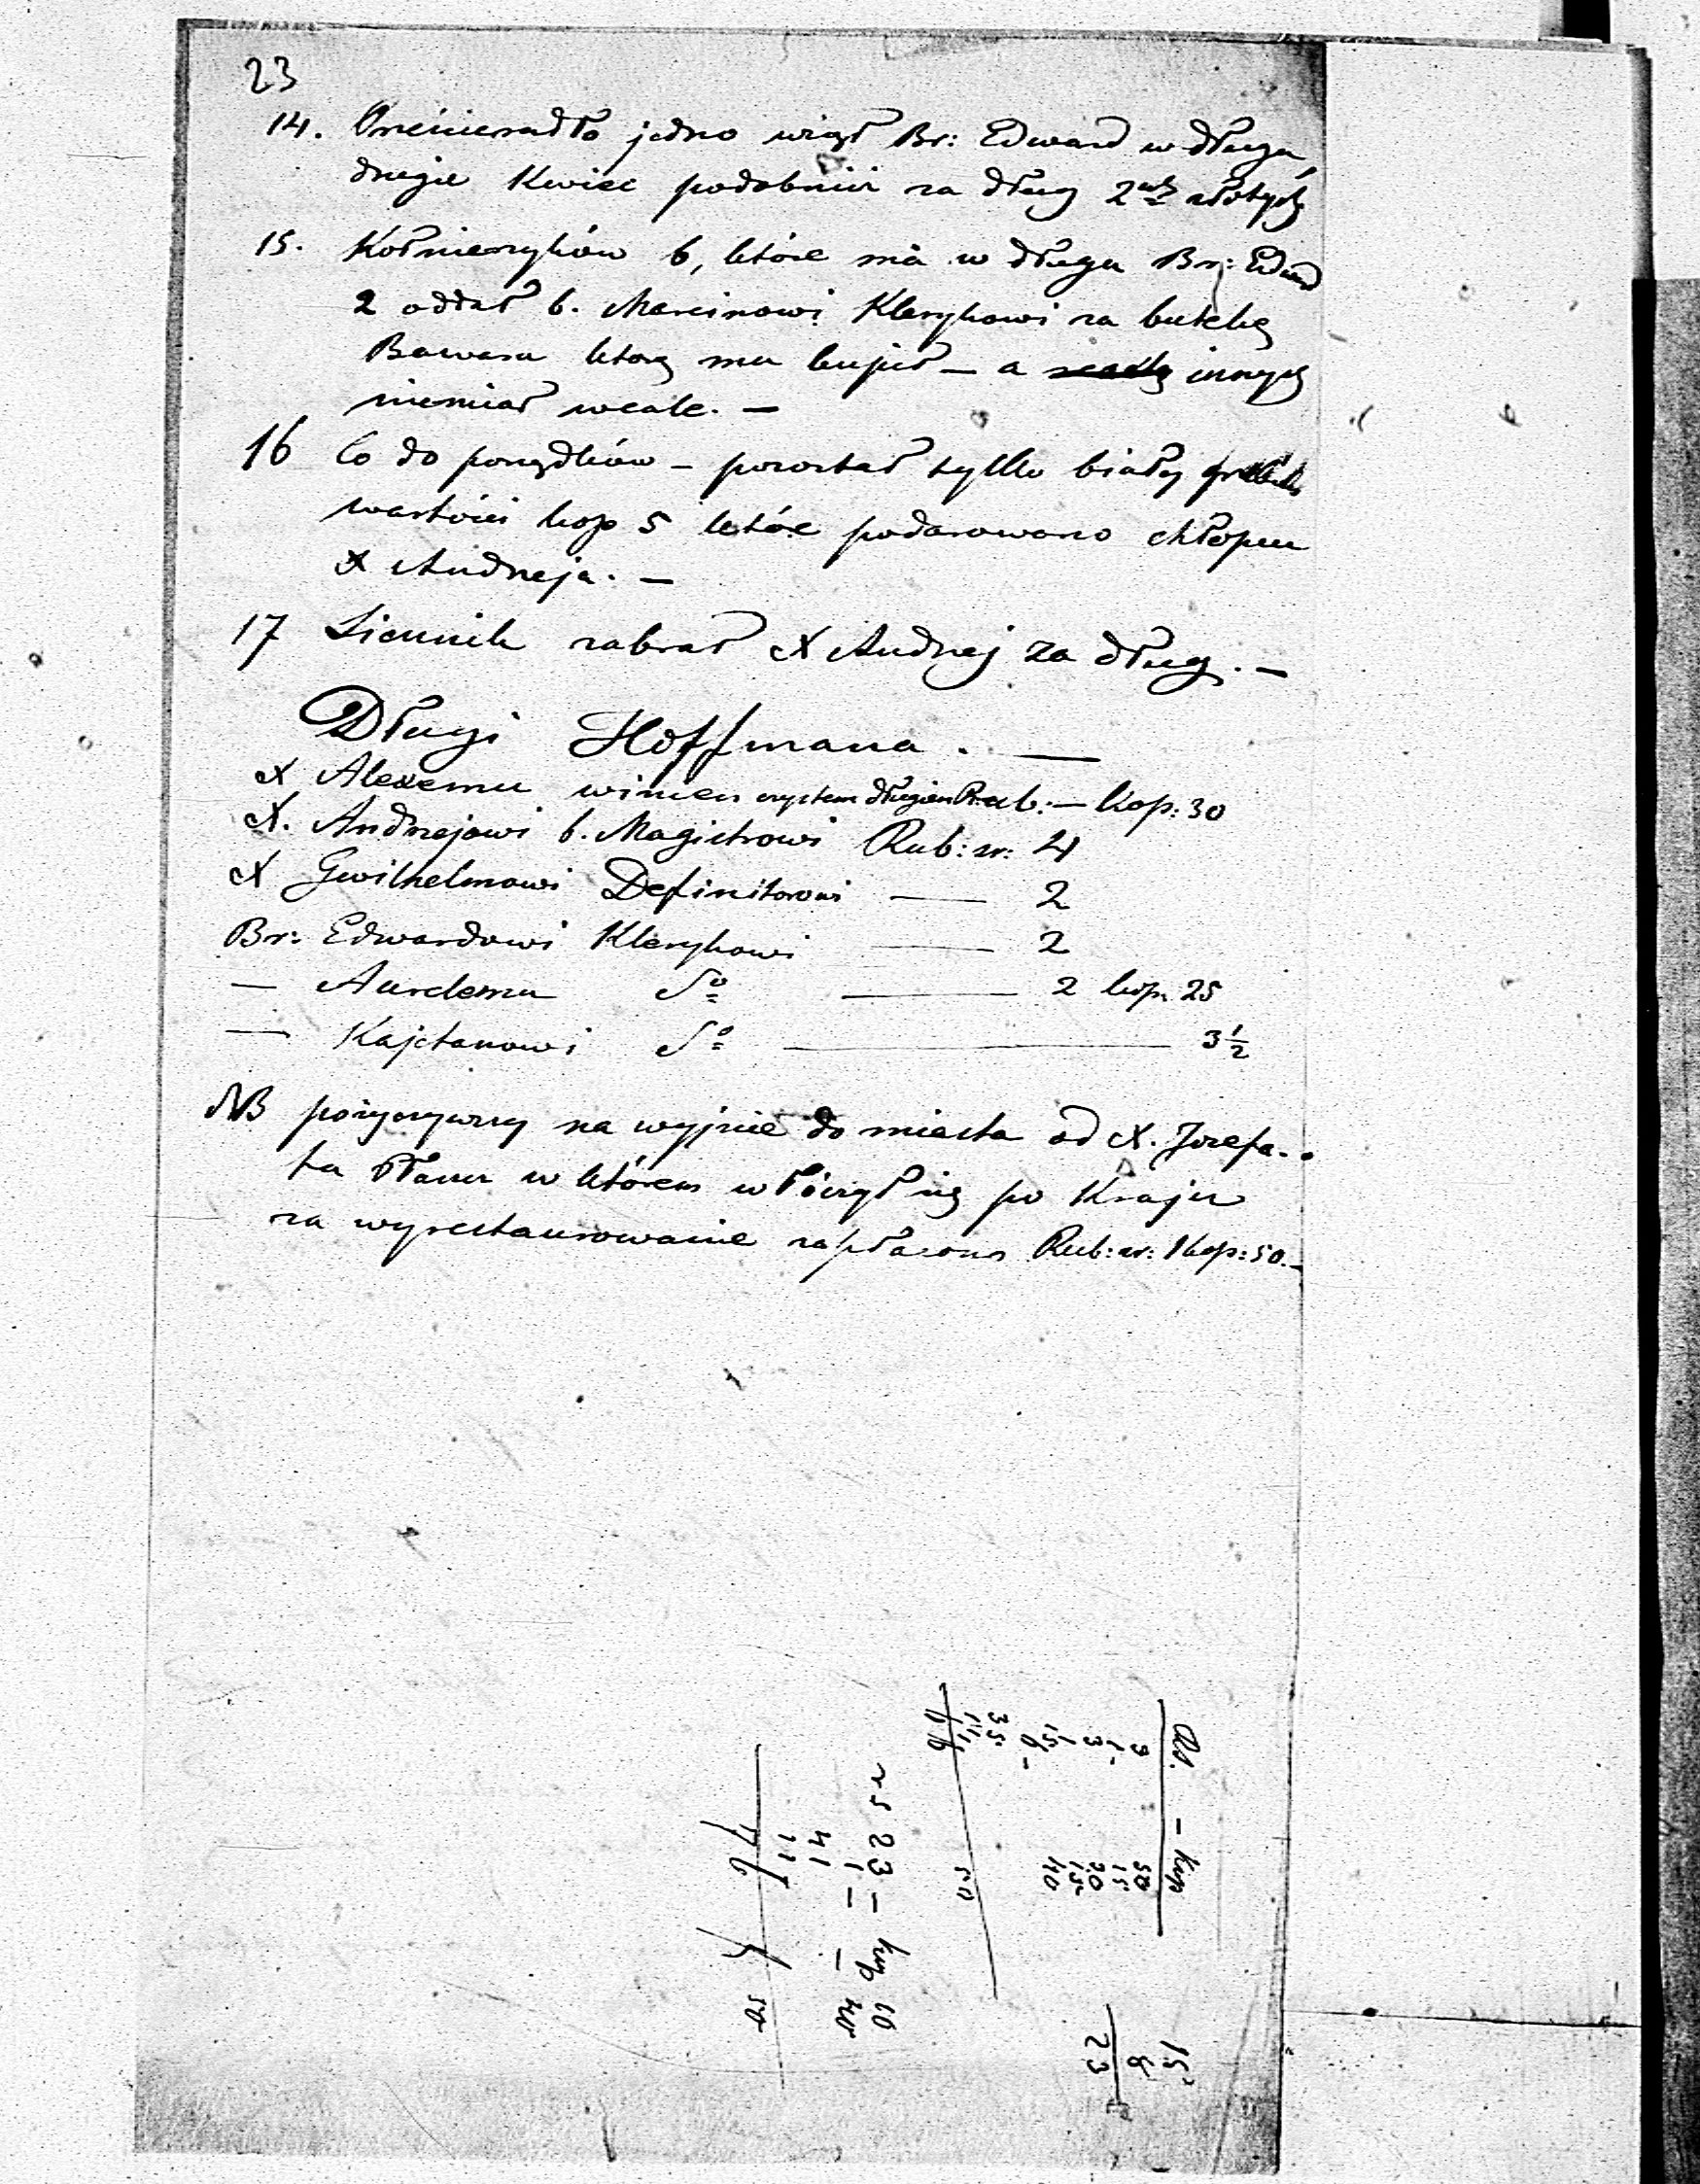 23
14. Prześcieradło jedno wziął Br: Edward w długu,
drugie Kwiec podobnież za dług 2ch złotych
15. Kołnierzyków 6, które ma w długu Br: Edward
2 oddał b. Marcinowi Klerykowi za butelkę
Bawara którą mu kupił – a innych
niemiał wcale. –
16 Co do porządków – pozostał tylko biały
wartości kop 5 które podarowano chłopcu
X Andrzeja. –
17 Siennik zabrał X Andrzej za dług. –
Długi Hoffmana. —
X Alexemu winien czystem długiem Rub: – Kop: 30
X. Andrzejowi b. Magistrowi Rub: sr: 4
X Gwilhelmowi Definitorowi — 2
Br: Edwardowi Klerykowi — 2
— Aurelemu do — 2 kop. 25
— Kajetanowi do — 3 1/2
NB pożyczywszy na wyjście do miasta od X. Jozefa-
ta Płaszcz w którem włóczył się po Kraju
za wyrestaurowanie zapłacono Rub: sr: 1 kop: 50. –
Rs. – kop
50
15
20
15
40
50
rs 23 – kop 10
1 – 40
41 –
11
50
15
8
23